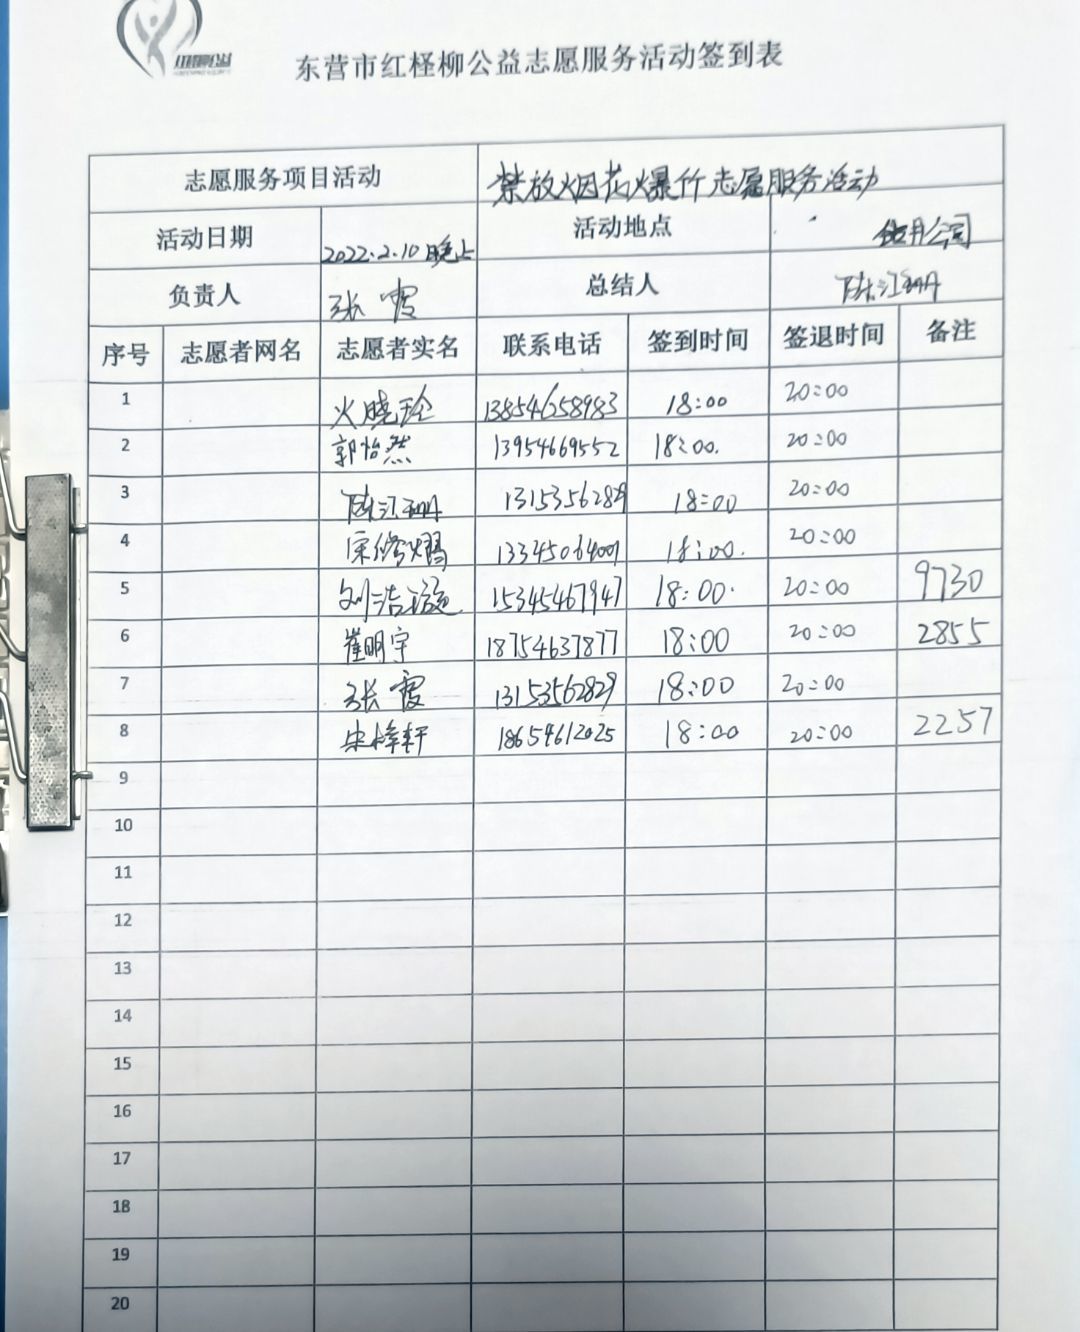 东营市红柽柳公益志愿服务活动签到表
志愿服务项目活动 禁放烟花爆竹志愿服务活动
活动日期 2022.2.10晚上 活动地点 公司
负责人 张霞 总结人 陈江珊
序号 志愿者网名 志愿者实名 联系电话 签到时间 签退时间 备注
1 火晓玲 13854658983 18:00 20:00
2 郭怡然 13954669552 18:00. 20:00
3 陈江珊 13153562829 18:00 20:00
4 13345064009 18:00. 20:00
5 刘浩璇 15345467947 18:00. 20:00 9730
6 崔明宇 18754637877 18:00 20:00 2855
7 张霞 13153562829 18:00 20:00
8 宋梓轩 18654612025 18:00 20:00 2257
9
10
11
12
13
14
15
16
17
18
19
20